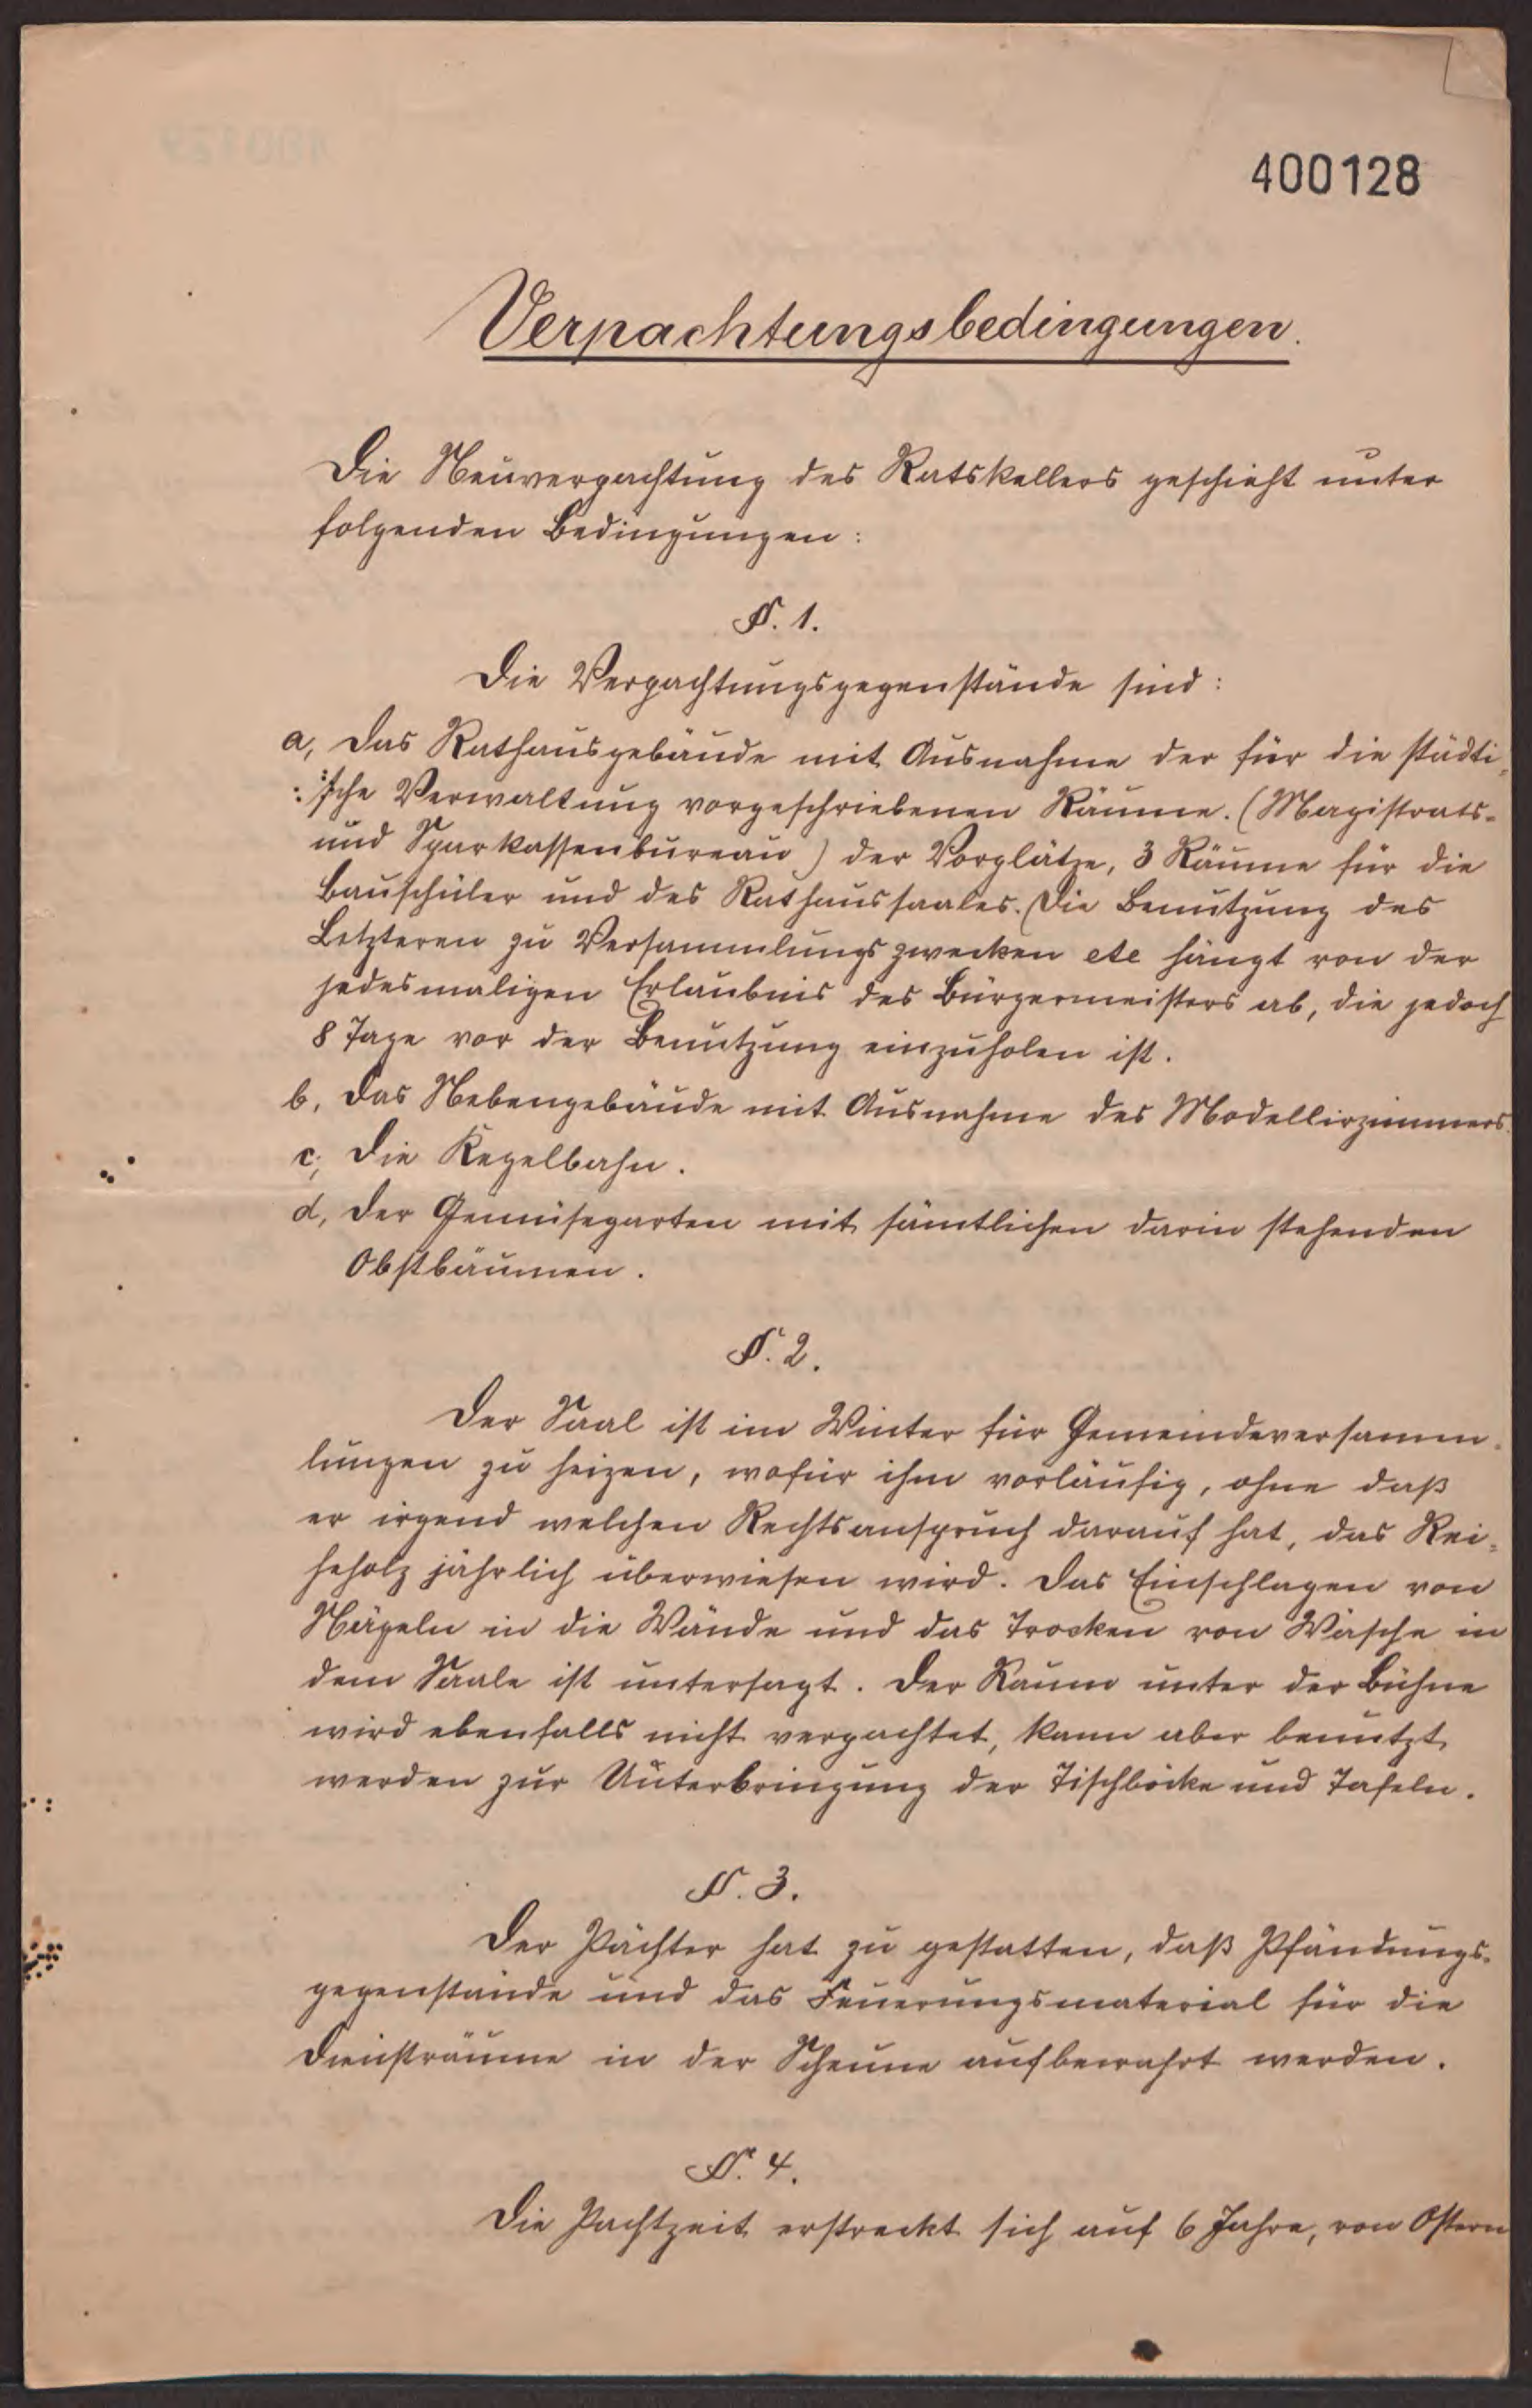 400128
Verpachtungsbedingungen.
Die Neuverpachtung des Ratskellers geschieht unter
folgenden Bedingungen:
§. 1.
Die Verpachtungsgegenstände sind:
a, Das Rathausgebäude mit Ausnahme der für die städti-
sche Verwaltung vorgeschriebenen Räume. (Magistrats-
und Sparkassenbureau) der Vorplätze, 3 Räume für die
Bauschüler und des Rathaussaales. Die Benutzung des
Letzteren zu Versammlungszwecken etc hängt von der
jedesmaligen Erlaubnis des Bürgermeisters ab, die jedoch
8 Tage vor der Benutzung einzuholen ist.
b, Das Nebengebäude mit Ausnahme des Modellirzimmers.
c, Die Kegelbahn.
d, Der Gemüsegarten mit sämtlichen darin stehenden
Obstbäumen.
§. 2.
Der Saal ist im Winter für Gemeindeversamm-
lungen zu heizen, wofür ihm vorläufig, ohne daß
er irgend welchen Rechtsanspruch darauf hat, das Rei-
heholz jährlich überwiesen wird. Das Einschlagen von
Nägeln in die Wände und das Trocken von Wäsche in
dem Saale ist untersagt. Der Raum unter der Bühne
wird ebenfalls nicht verpachtet, kann aber benutzt
werden zur Unterbringung der Tischböcke und Tafeln.
§. 3.
Der Pächter hat zu gestatten, daß Pfändungs-
gegenstände und das Feuerungsmaterial für die
Diensträume in der Scheune aufbewahrt werden.
§. 4.
Die Pachtzeit erstreckt sich auf 6 Jahre, von Ostern